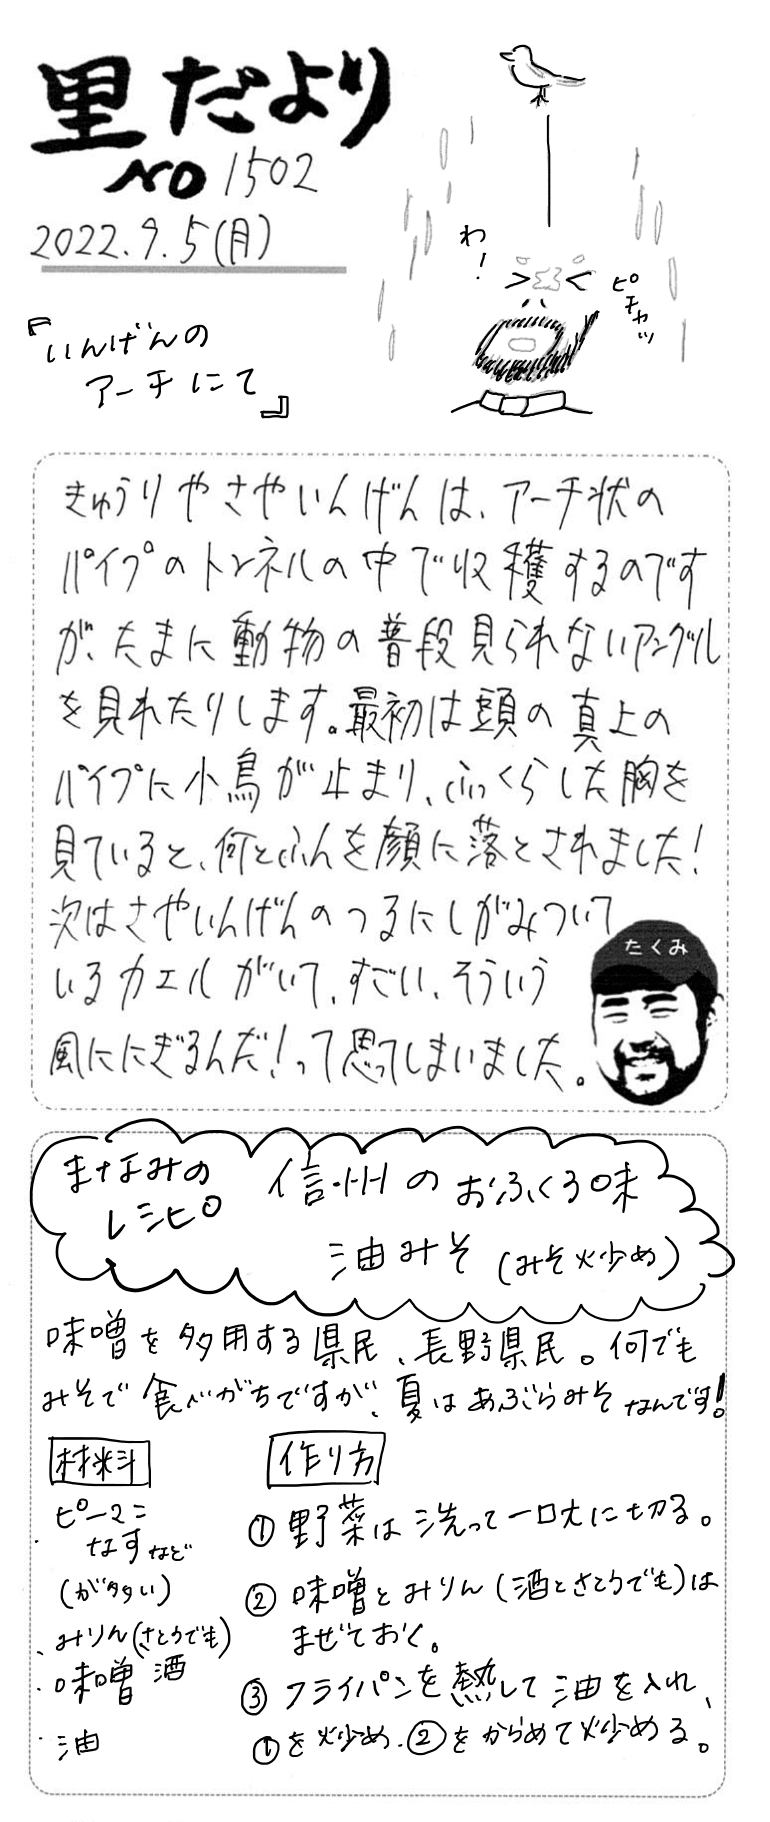 里だより
NO 1502
2022.9.5(月)
わ!
ピチャッ
『いんげんの
アーチにて』
きゅうりやさやいんげんは、アーチ状の
パイプのトンネルの中で収穫するのです
が、たまに動物の普段見られないアングル
を見れたりします。最初は頭の真上の
パイプに小鳥が止まり、ふっくらした胸を
見ていると、何とふんを顔に落とされました!
次はさやいんげんのつるにしがみついて
いるカエルがいて、すごい、そういう
風ににぎるんだ!って思ってしまいました。
たくみ
まなみの
レシピ
信州のおふくろ味
油みそ(みそ炒め)
味噌を多用する県民、長野県民。何でも
みそで食べがちですが、夏はあぶらみそなんです!
材料
ピーマン
なすなど
(が多い)
・みりん(さとうでも)
・味噌 酒
・油
作り方
①野菜は洗って一口大に切る。
②味噌とみりん(酒とさとうでも)は
まぜておく。
③フライパンを熱して油を入れ、
①を炒め、②をからめて炒める。